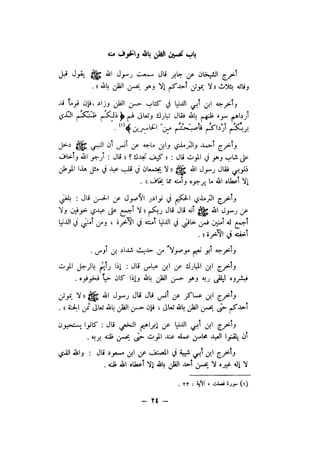 باب تحسين الظن بالله والخوف منه
أخرج الشيخان عن جابر قال سمعت رسول الله ﷺ يقول قبل
وفاته بثلاث « لا يموتن أحدكم إلا وهو يحسن الظن بالله » .
وأخرجه ابن أبي الدنيا في كتاب حسن الظن وزاد . فإن قوماً قد
أرداهم سوء ظنهم بالله فقال تبارك وتعالى لهم ﴿ ذٰلِكُمْ ظَنُّكُمُ الَّذي
بِرَبِّكُمْ أرْدَاكُمْ فَأصبَحْتُمْ مِنَ الخَاسِرينَ ﴾ (١) .
وأخرج أحمد والترمذي وابن ماجه عن أنس أن النبي ﷺ دخل
على شاب وهو في الموت قال : « كيف تجدك ؟ قال : أرجو الله وأخاف
ذنوبي فقال رسول الله ﷺ « لا يجتمعان في قلب عبد في مثل هذا الموطن
إلا أعطاه الله ما يرجوه وأمنه مما يخاف » .
وأخرج الترمذي الحكيم في نوادر الأصول عن الحسن قال : بلغني
عن رسول الله ﷺ أنه قال قال ربكم « لا أجمع على عبدي خوفين ولا
أجمع له أمنين فمن خافني في الدنيا أمنته في الآخرة ، ومن أمنني في الدنيا
أخفته في الآخرة » .
وأخرجه أبو نعيم موصولاً من حديث شداد بن أوس .
وأخرج ابن المبارك عن ابن عباس قال : إذا رأيتم بالرجل الموت
فبشروه ليلقى ربه وهو حسن الظن بالله وإذا كان حياً فخوفوه .
وأخرج ابن عساكر عن أنس قال قال رسول الله ﷺ « لا يموتن
أحدكم حتى يحسن الظن بالله تعالى ، فإن حسن الظن بالله تعالى ثمن الجنة » .
وأخرج ابن أبي الدنيا عن إبراهيم النخعي قال : كانوا يستحبون
أن يلقنوا العبد محاسن عمله عند الموت حتى يحسن ظنه بربه .
وأخرج ابن أبي شيبة في المصنف عن ابن مسعود قال : والله الذي
لا إله غيره لا يحسن أحد الظن بالله إلا أعطاه الله ظنه .
(١) سورة فصلت ، الآية : ٢٣ .
– ٢٤ –